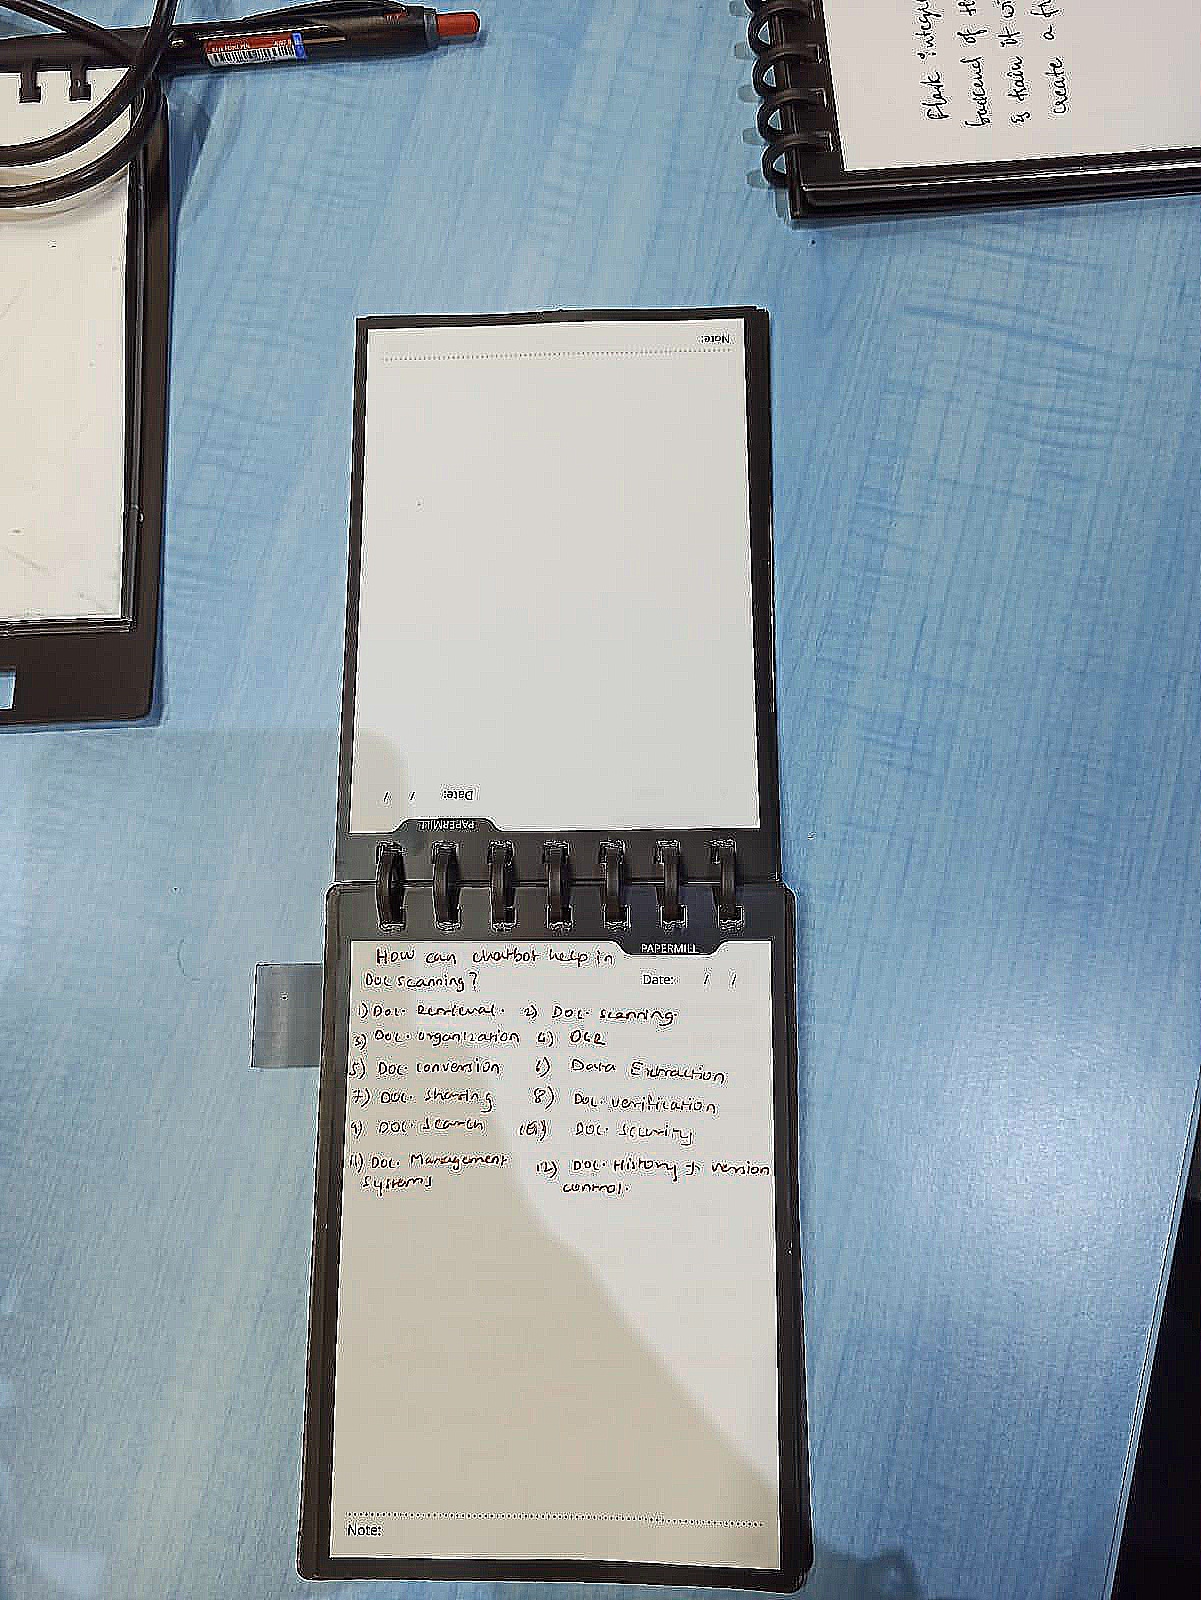 Flask integ
backend of th
& train it wi
create a f
Note:
Date: / /
PAPERMILL
PAPERMILL
How can chatbot help in
Doc scanning?
Date: / /
1) Doc. Retrieval. 2) Doc. scanning.
3) Doc. organization 4) OCR
5) Doc. conversion 6) Data Extraction
7) Doc. sharing 8) Doc. verification
9) Doc. search 10) Doc. security
11) Doc. Management 12) Doc. History & version
systems control.
Note: